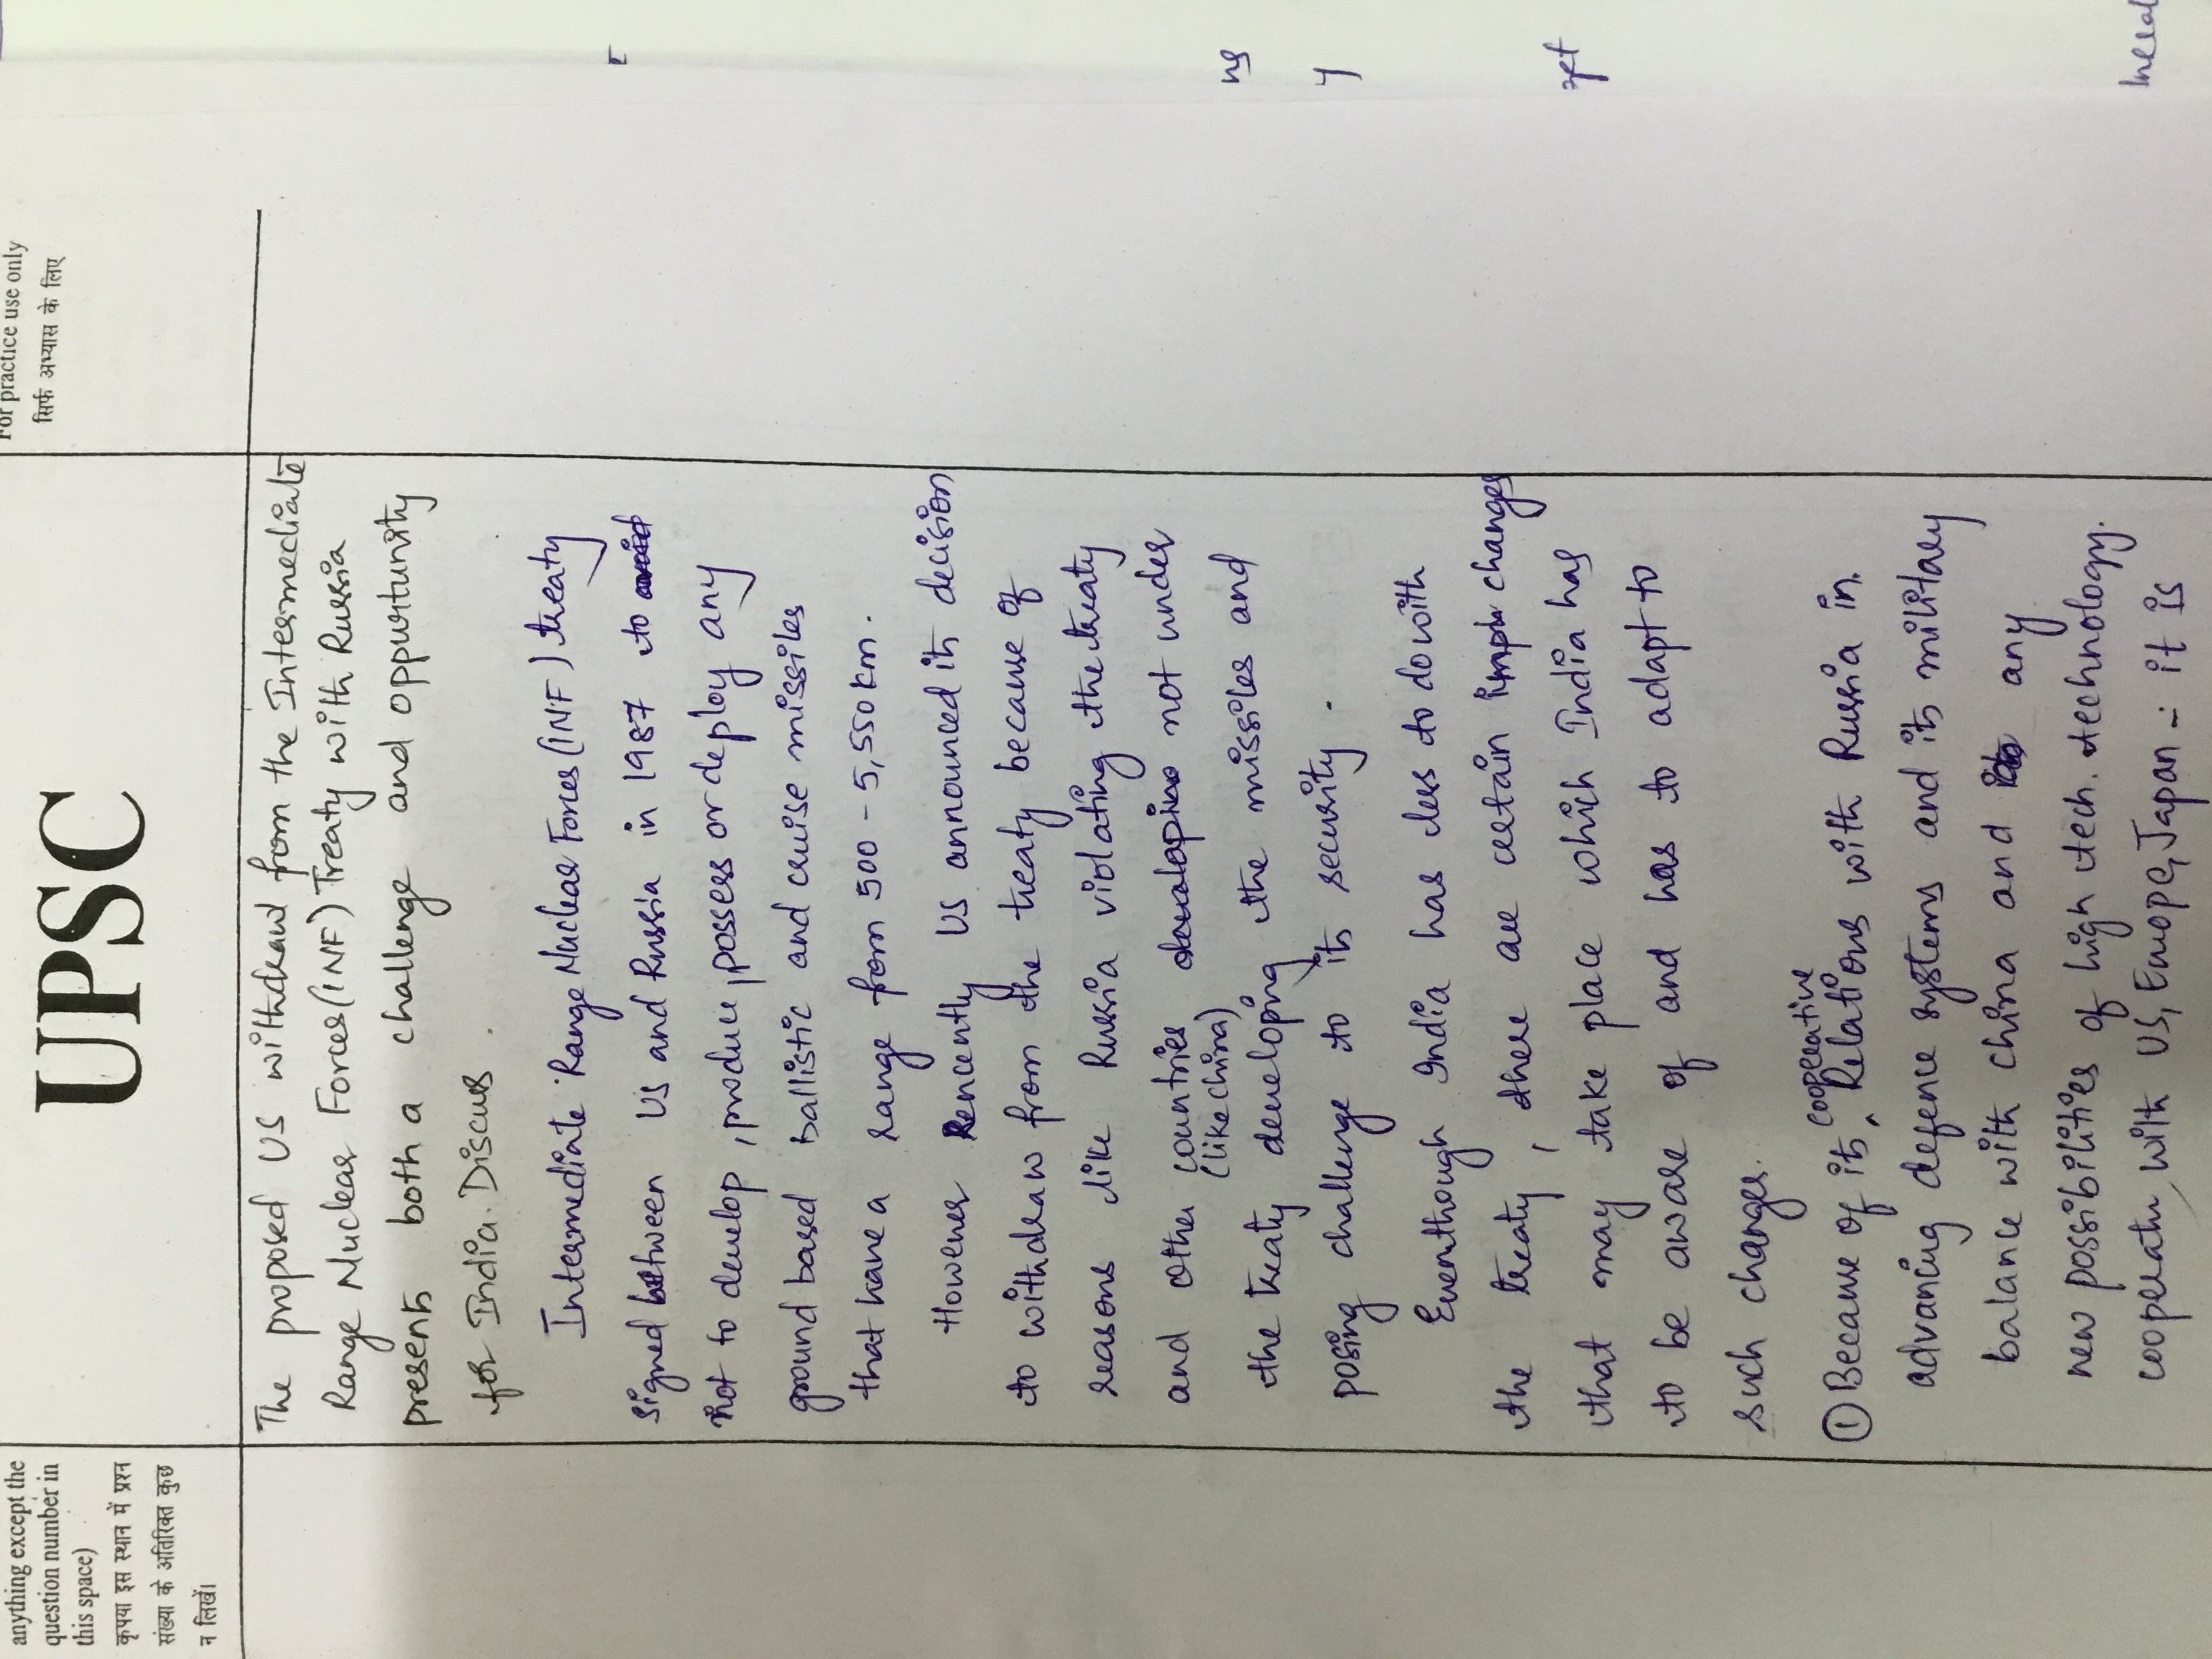 anything except the
question number in
this space)
कृपया इस स्थान में प्रश्न
संख्या के अतिरिक्त कुछ
न लिखें।
UPSC
For practice use only
सिर्फ अभ्यास के लिए
The proposed US withdraw from the Intermediate
Range Nuclear Forces(INF) Treaty with Russia
presents both a challenge and oppurtunity
for India. Discuss.
Intermediate Range Nuclear Forces (INF) treaty
signed between US and Russia in 1987 to
not to develop, produce, possess or deploy any
ground based ballistic and cruise missiles
that have a range from 500 - 5,550 km.
However Rencently US announced its decision
to withdraw from the treaty because of
reasons like Russia violating the treaty
and other countries not under
(like china)
the treaty developing the missiles and
posing challenge to its security.
Eventhough India has less to do with
the treaty, there are certain changes
that may take place which India has
to be aware of and has to adapt to
such changes.
cooperative
① Because of its Relations with Russia in
advancing defence systems and its military
balance with china and any
new possibilities of high tech. technology.
cooperatn with US, Europe, Japan - it is
ng
y